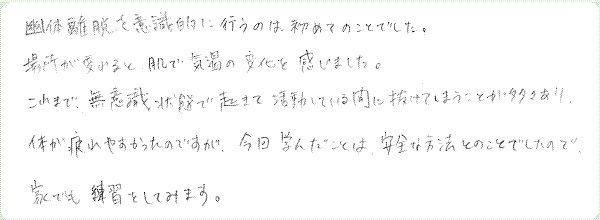 幽体離脱を意識的に行うのは初めてのことでした。
場所が変わると肌で気温の変化を感じました。
これまで、無意識状態で起きて活動している間に抜けてしまうことが多々あり、
体が疲れやすかったのですが、今回学んだことは、安全な方法とのことでしたので、
家でも練習をしてみます。